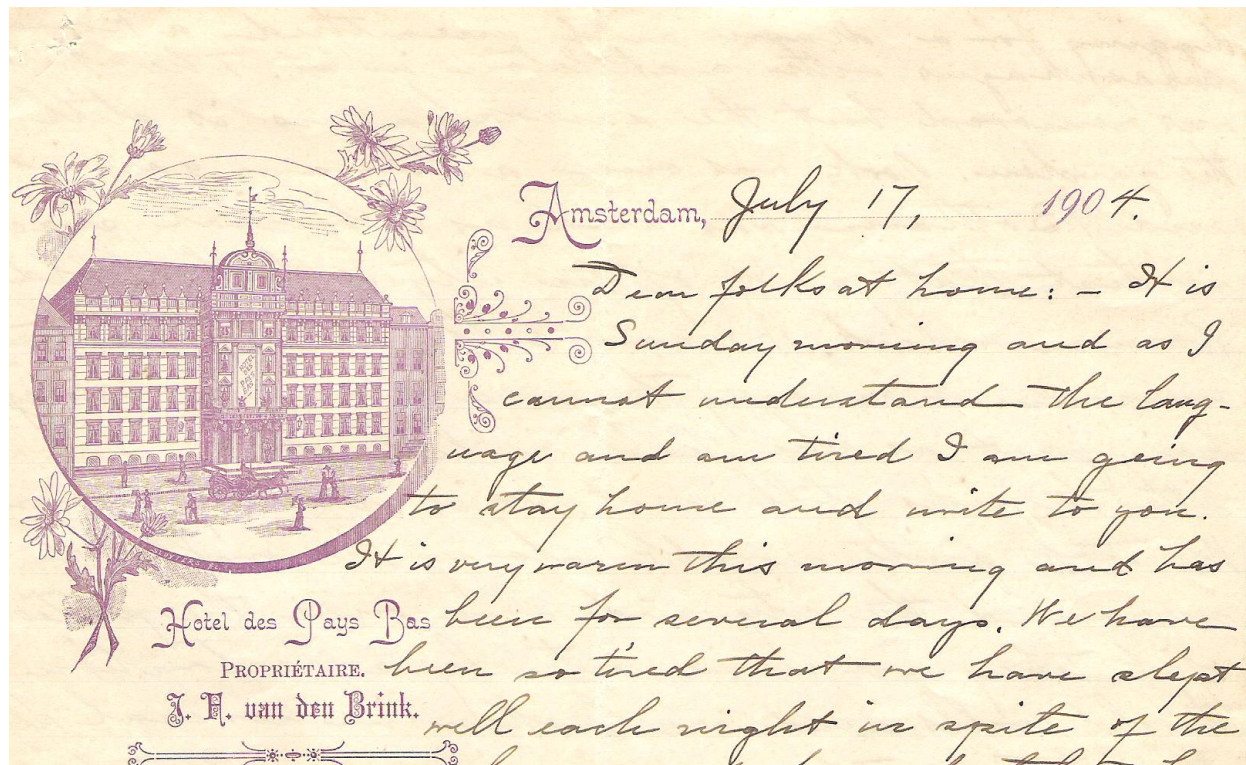 Amsterdam, July 17, 1904.
Dear folks at home: – It is
Sunday morning and as I
cannot understand the lang-
uage and am tired I am going
to stay home and write to you.
It is very warm this morning and has
been for several days. We have
been so tired that we have slept
well each night in spite of the
HOTEL DES PAYS BAS
Hotel des Pays Bas
PROPRIÉTAIRE.
J. H. van den Brink.